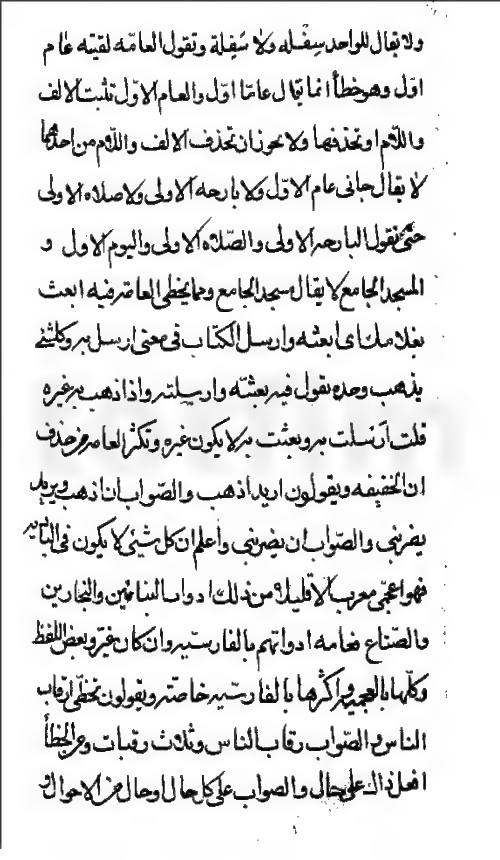 ولا يقال للواحد سِفْله ولا سَفِلة وتقول العامّه لقيته عام
اوّل وهو خطأ انما يقال عامًا اوّل والعام الاوّل تثبت الالف
واللّام او تحذفها ولا يجوز ان تحذف الالف واللّام من احدهما
لا يقال جانى عام الاوّل ولا بارحه الاولى ولا صلاه الاولى
حتى تقول البارحه الاولى والصّلاه الاولى واليوم الاول و
المسجد الجامع لا يقال مسجد الجامع ومما يخطى العامه فيه ابعث
بغلامك اى ابعثه وارسل الكتاب فى معنى ارسل به وكل شئ
يذهب وحده يقول فيه بعثته وارسلته واذا ذهب به غيره
قلت ارسلت به وبعثت به لا يكون غيره وتكثر العامه من حذف
ان الخفيفه ويقولون اريد اذهب والصّواب ان اذهب ويريد
يضربنى والصّواب ان يضربنى واعلم ان كل شئ لا يكون فى الباديه
فهو اعجمى معرب الا قليلا من ذلك ادوات البنائين والنجارين
والصّناع فعامه ادواتهم بالفارسيه وان كان غيره وبعض اللفظ
وكلها بالعجميه واكثرها بالفارسيه خاصّه ويقولون تخطّى ارقاب
الناس والصّواب رقاب الناس وثلاث رقبات ومن الخطأ
افعل ذاك على حال والصواب على كل حال او حال من الاحوال و